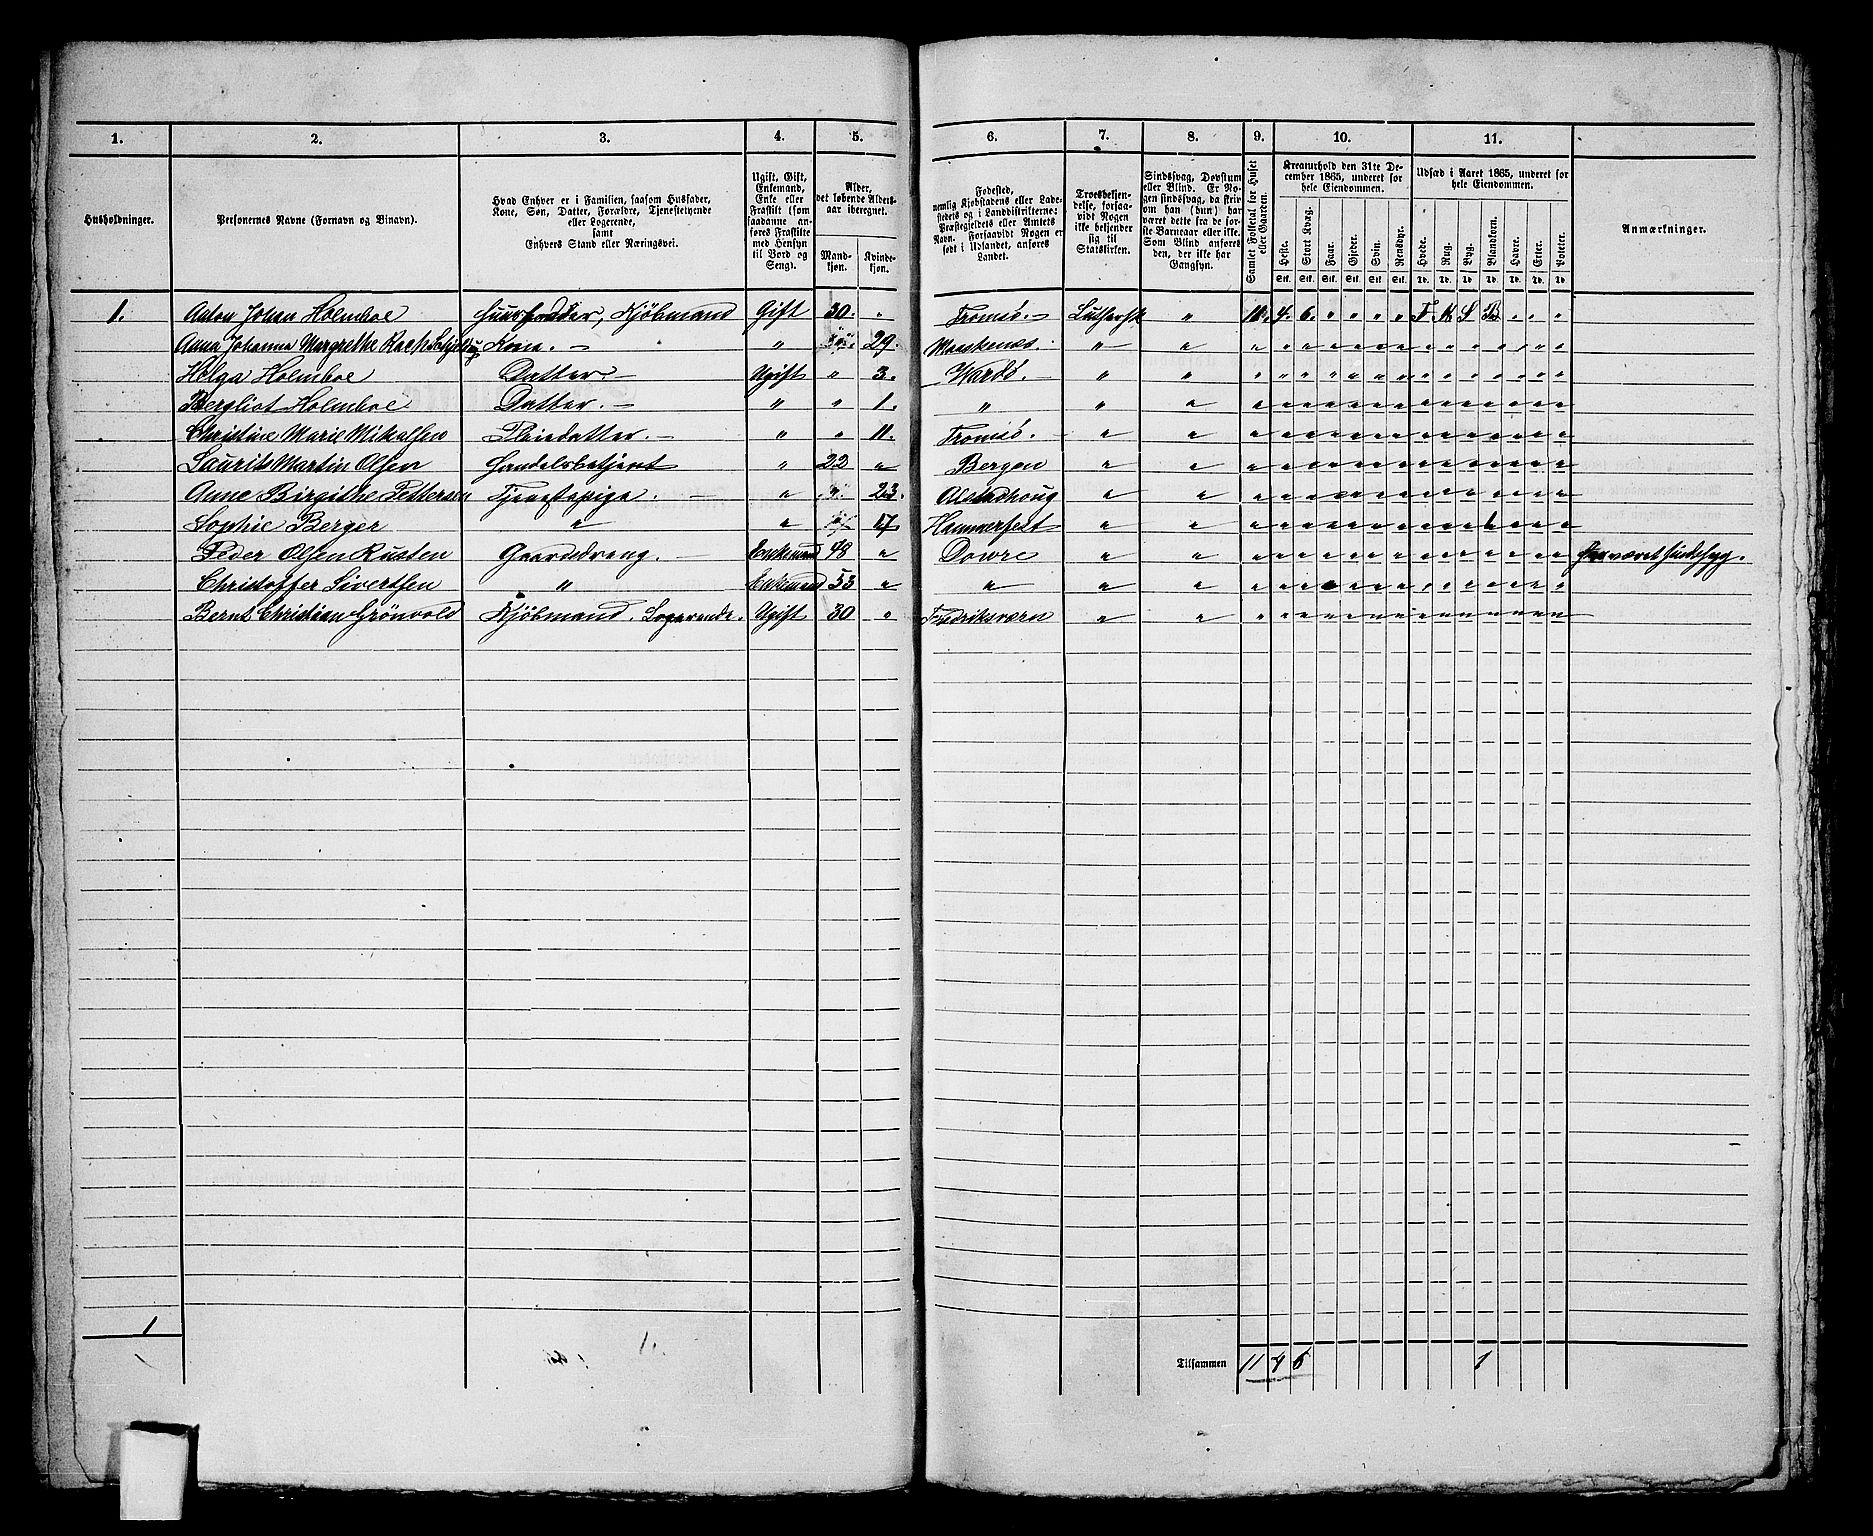 1. 2. 3. 4. 5. 6. 7. 8. 9. 10. 11.
Husholdninger.
Personernes Navne (Fornavn og Binavn).
Hvad Enhver er i Familien, saasom Husfader,
Kone, Søn, Datter, Forældre, Tjenestetyende
eller Logerende,
samt
Enhvers Stand eller Næringsvei.
Ugift, Gift,
Enkemand,
Enke eller
Fraskilt (som
saadanne an-
føres Fraskilte
med Hensyn
til Bord og
Seng).
Alder,
det løbende Alders-
aar iberegnet.
Mand-
kjøn.
Kvinde-
kjøn.
Fødested,
nemlig Kjøbstadens eller Lade-
stedets og i Landdistrikterne:
Præstegjeldets eller Amtets
Navn. Forsaavidt Nogen er
født i Udlandet, anføres
Landet.
Troesbekjen-
delse, forsaa-
vidt Nogen
ikke bekjender
sig til
Statskirken.
Sindssvag, Døvstum
eller Blind. Er No-
gen sindssvag, da skri-
ves om han (hun) har
været dette fra de før-
ste Barneaar eller ikke.
Som Blind anføres
den, der ikke har
Gangsyn.
Samlet Folketal for Huset
eller Gaarden.
Kreaturhold den 31te De-
cember 1865, underet for
hele Eiendommen.
Heste. Stort Kvæg. Faar. Gjeder. Svin. Rensdyr.
Stk. Stk. Stk. Stk. Stk. Stk.
Udsæd i Aaret 1865, underet for
hele Eiendommen.
Hvede. Rug. Byg. Blandkorn. Havre. Erter. Poteter.
Td. Td. Td. Td. Td. Td. Td.
Anmærkninger.
1. Anton Johan Holmboe Huusfader, Kjøbmand Gift 30. " Tromsø. Luthersk " 10. 4. 6. " " " "
Anna Johanna Margrethe Kone. " " 29. " "
Helga Holmboe Datter Ugift " 3. Wardø. " "
Bergliot Holmboe Datter. " " 1. " " "
Christine Marie Mikalsen Pleiedatter. " " 11. Tromsø. " "
Laurits Martin Olsen Handelsbetjent " 22 " Bergen " "
Anne Birgithe Pettersen Tjenestepige. " " 23. Alstadhoug " "
Sophie Berger " " 17 Hammerfest " "
Peder Olsen Rusten Gaardsdreng. Enkemand 48 " Dowre " " har været sindssyg.
Christoffer Sivertsen " Enkemand 53 " " " "
Bernt Christian Grönvold Kjöbmand. Logerende. Ugift 30 " Fredriksværn " "
1
Tilsammen 11 4 6 1